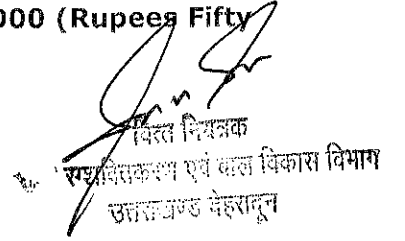 000 (Rupees Fifty
वित्त नियंत्रक
एवं बाल विकास विभाग
उत्तराखण्ड देहरादून